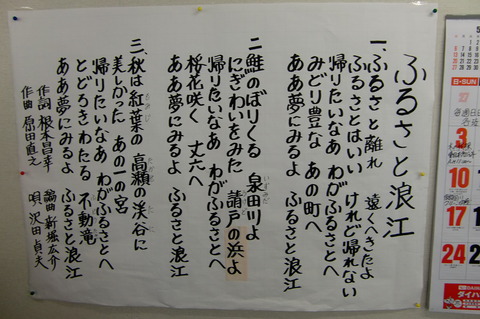 ふるさと浪江
一、ふるさと離れ 遠くへきたよ
ふるさとはいい けれど帰れない
帰りたいなあ わがふるさとへ
みどり豊な あの町へ
ああ夢にみるよ ふるさと浪江
二、鮭のぼりくる 泉田川よ
にぎわいをみた 請戸の浜よ
帰りたいなあ わがふるさとへ
桜花咲く 丈六へ
ああ夢にみるよ ふるさと浪江
三、秋は紅葉の 高瀬の渓谷に
美しかった あの一の宮
帰りたいなあ わがふるさとへ
とどろきわたる 不動滝
ああ夢にみるよ ふるさと浪江
作詞 根本昌幸
作曲 原田直之
編曲 新堀広介
唄 沢田貞夫
B-SUN
3
10
17
24
ダイハ